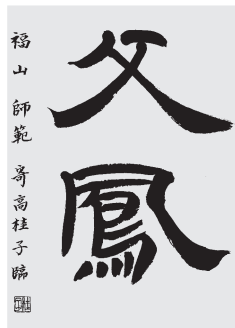 父鳳
福山 師範 寄高桂子臨